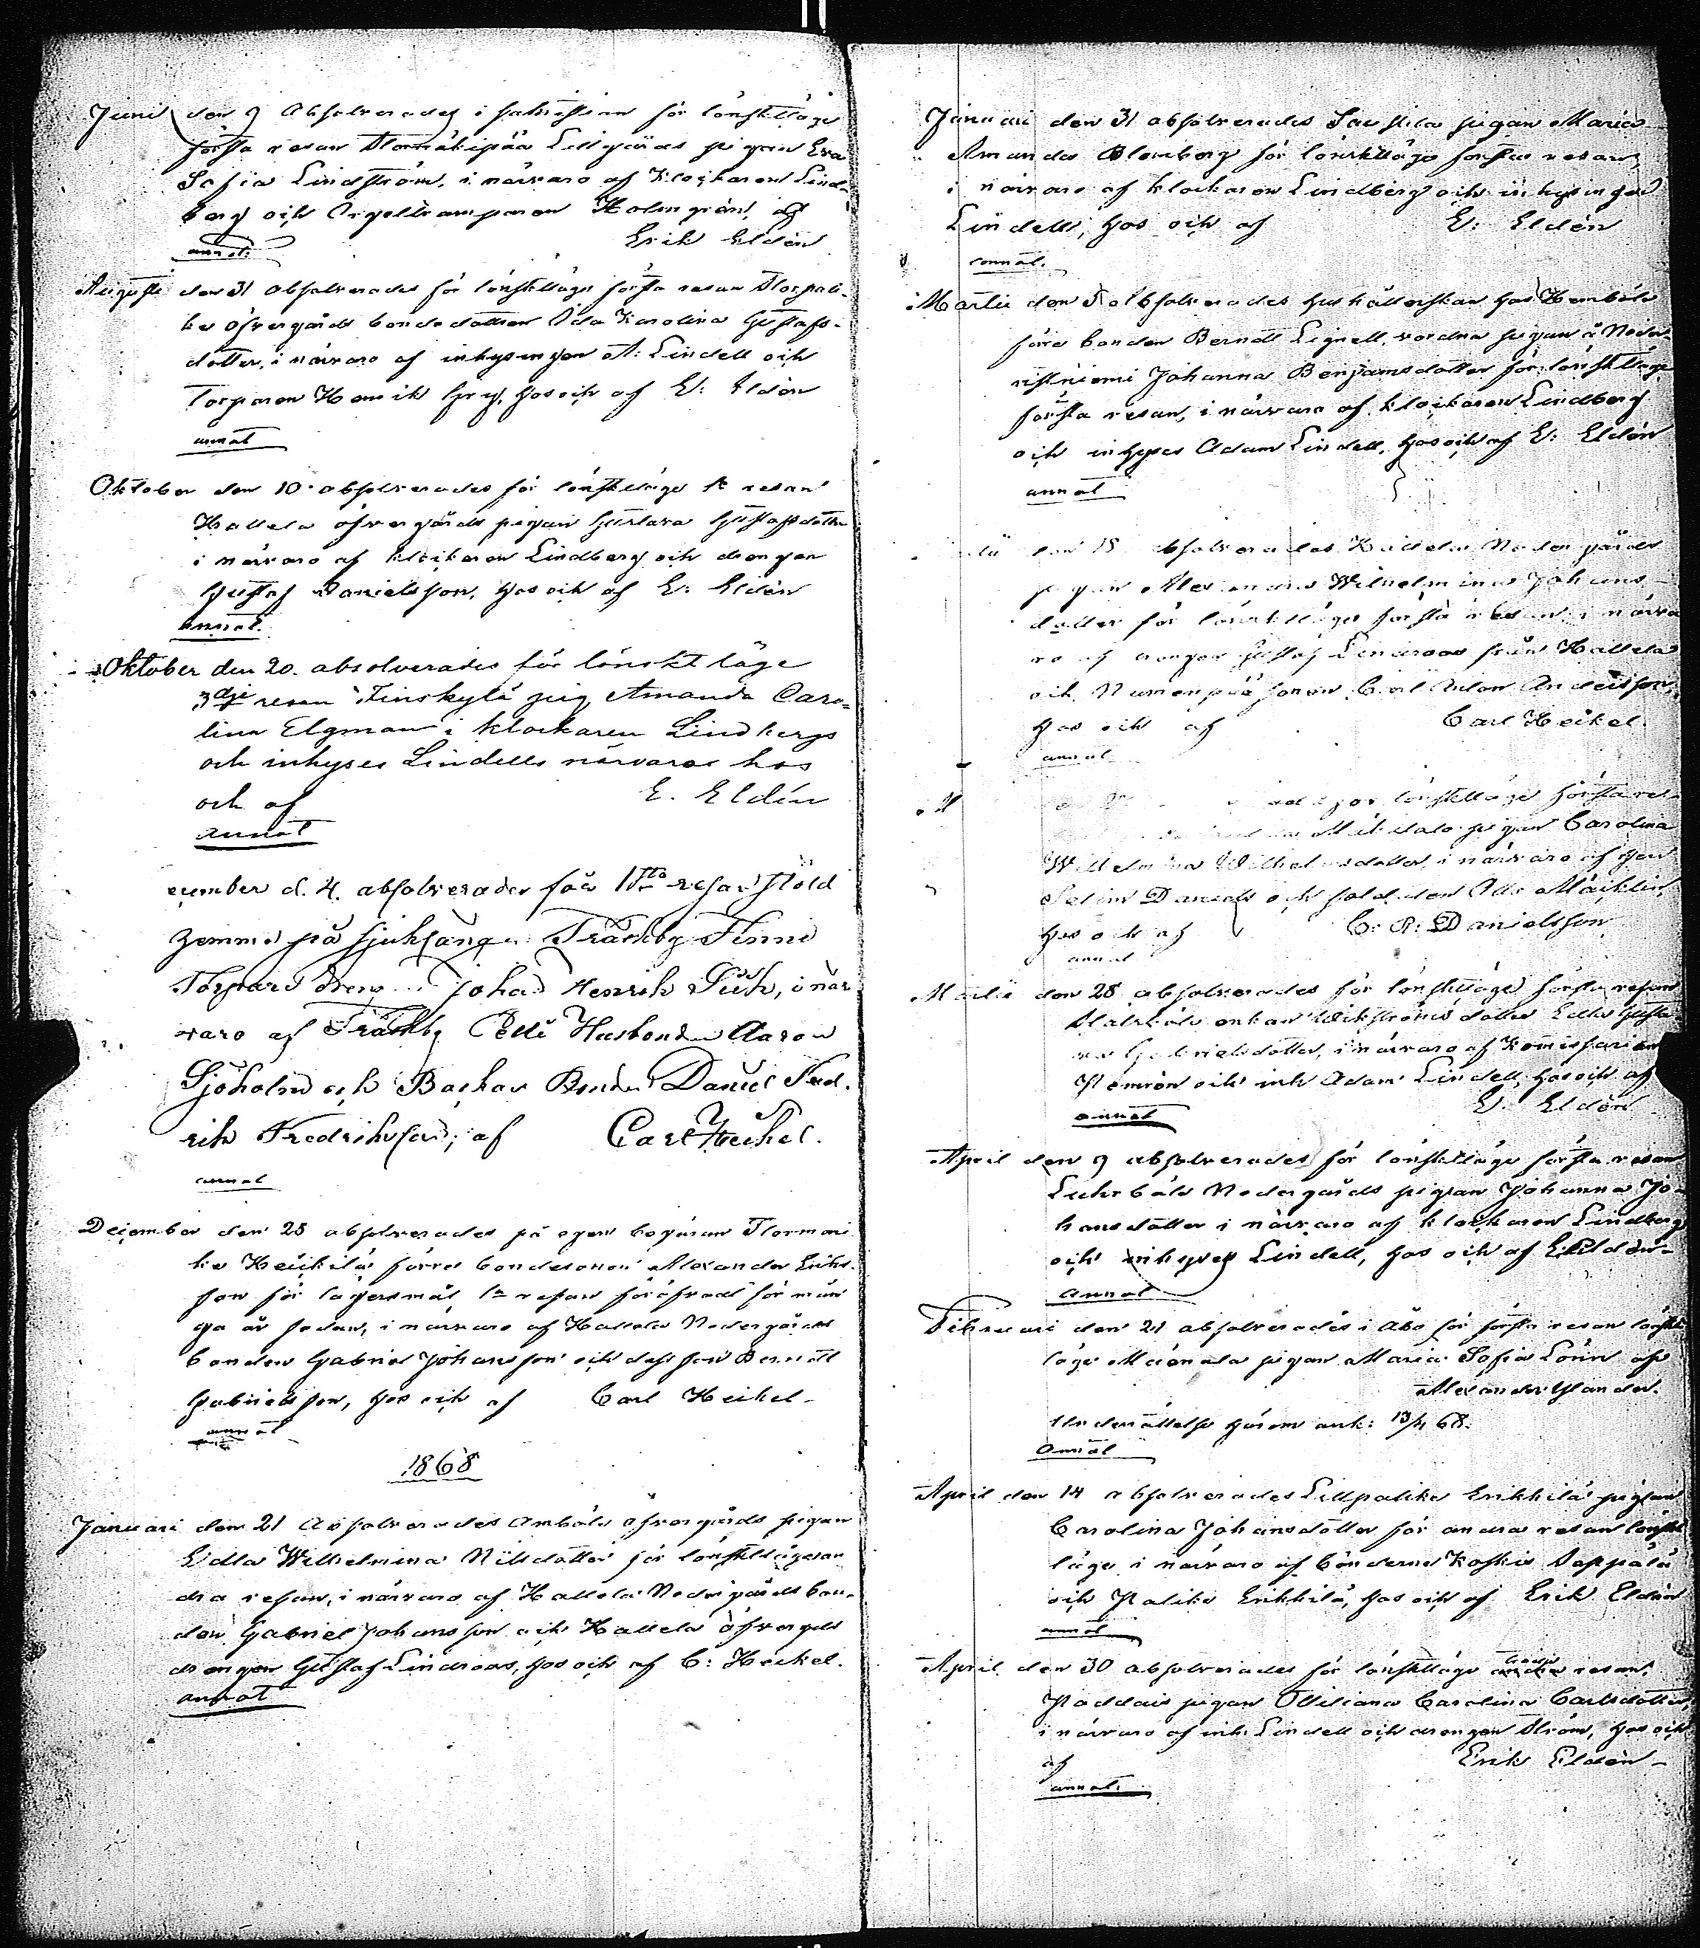 Juni den 9 Absolverades i sakristian för lönskeläge
första resan Lillgårds pigan Eva
Sofia Lindström, i närvaro af klockaren Lind-
berg och Orgeltramparen Holmgrén, af
Erik Eldén
annot.
Augusti den 31 absolverades för lönskeläge första resan Storpali-
ke öfvergårds bondedottren Ida Karolina Gustafs-
dotter, i närvaro af inhysingen A. Lindell och
Torparen Henrik Grey, hos och af E. Eldén
annot
Oktober den 10 absolverades för lönskeläge 1a resan
Hallela öfvergårds pigan Gustava Gustafsdotter
i närvaro af klockaren Lindberg och drengen
Gustaf Danielsson, hos och af E. Eldén
annot.
Oktober den 20. absolverades för lönskt läge
3dje resan Finskylä pig. Amanda Caro-
lina Elgman i klockaren Lindbergs
och inhyses Lindells närvaro hos
och af E. Eldén
annot
cember d. 4. absolverades för 1sta resan stöld
hemma på sjuksängen Träskby Finne
Torpare Johan Henrik, i när
varo af Träskby Pelli Husbonden Aaron
Sjöholm och Backas Bonden Daniel Fred-
rik Fredriksson, af Carl Heikel.
annot
December den 28 absolverades på egen begäran
Heickilä förra bondesonen Alexander Eriks-
son för lägersmål 1a resan föröfvadt för mån
ga år sedan, i närvaro af Hallela Nedergårds
bonden Gabriel Johansson och dess son Berndt
Gabrielsson, hos och af Carl Heikel.
annot
1868
Januari den 21 Absolverades Ambåla öfvergårds pigan
Edla Wilhelmina Nilsdotter för lönskeläge an
dra resan, i närvaro af Hallela Nedergårds bon-
den Gabriel Johansson och Hallela öfvergårds
drengen Gustaf Lindroos, hos och af C. Heikel.
annot
Januari den 31 absolverades Saustila pigan Maria
Amanda Blomberg för lönskeläge första resan,
i närvaro af klockaren Lindberg och inhysingen
Lindell, hos och af E. Eldén
annot.
Martii den absolverades hushållerskan hos
förra bonden Berndt Lignell, vordna pigan å Neder-
ristniemi Johanna Benjamsdotter för lönskeläge
första resan, i närvaro af klockaren Lindberg
och inhyses Adam Lindell, hos och af E. Eldén
annot
den absolverades Hallela Nedergårds
pigan Wilhelmina Johans-
dotter för lönskeläge första resan i närva
ro af drengen Gustaf Lindroos från Hallela
och sonen Carl Anton Andersson,
hos och af Carl Heikel.
annot
för lönskeläge första res-
pigan Carolina
Wilhelmina Wilhelmsdotter, i närvaro af
Selim Daniels och soldaten Otto
hos och af C. R. Danielsson
annot
Martii den 28 absolverades för lönskeläge första resan
enkan Wikströms dotter Gusta-
va Gabrielsdotter, i närvaro af Komissarien
och inh. Adam Lindell, hos och af
E. Eldén
annot
April den 9 absolverades för lönskeläge första resan
Nedergårds pigan Johanna Jo-
hansdotter i närvaro af klockaren Lindberg
och inhyses Lindell, hos och af E. Eldén
annot
Februari den 21 absolverades i Åbo för första resan lönske-
läge pigan Maria Sofia Lönn af
Alexander Ylander.
Underrättelse härom ank: 13/4 68.
Annot
April den 14 absolverades Lillpalike Erikkilä pigan
Carolina Johansdotter för andra resan lönske
läge i närvaro af bönderne Koskis Seppälä
och Palike Erikkilä, hos och af Erik Eldén
annot
April den 30 absolverades för lönskeläge tredje resan
Paddais pigan Carolina Carlsdotter,
i närvaro af inh. Lindell och drengen Ström, hos och
af Erik Eldén
annot.